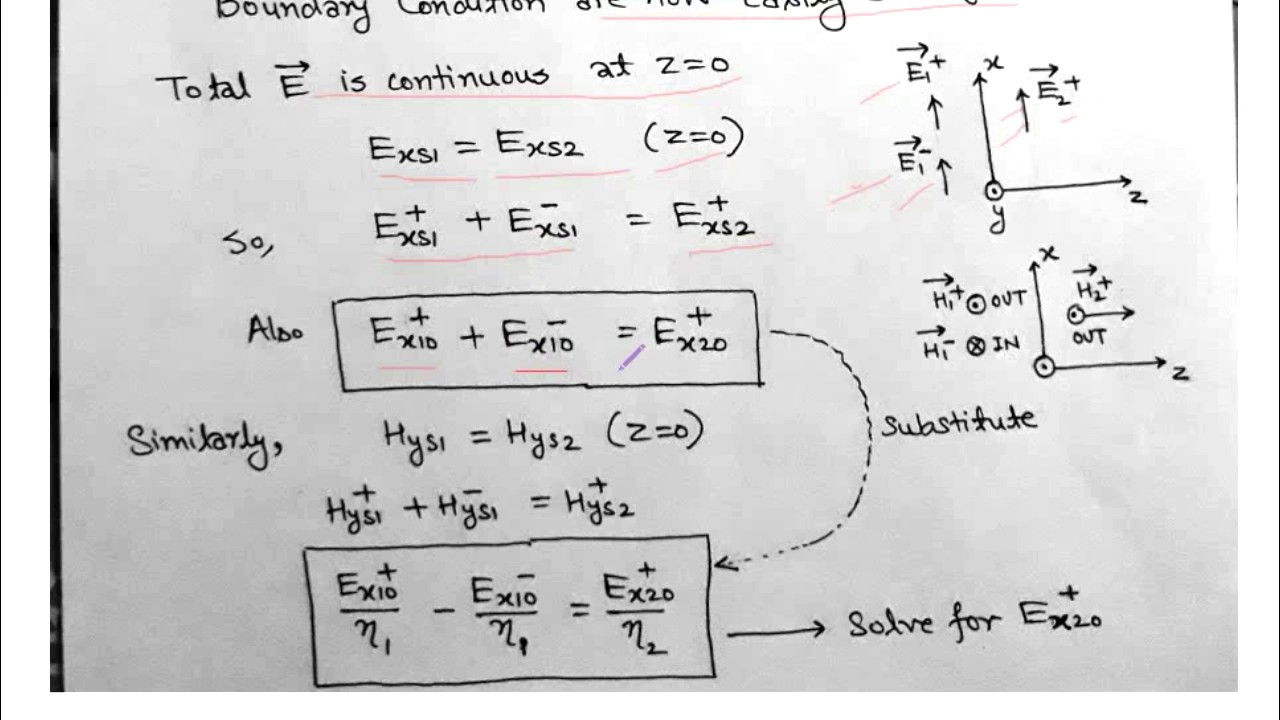 Boundary Condition are now easily
Total E⃗ is continuous at z=0
Exs1 = Exs2 (z=0)
So, E⁺xs1 + E⁻xs1 = E⁺xs2
Also E⁺x10 + E⁻x10 = E⁺x20
Similarly, Hys1 = Hys2 (z=0)
H⁺ys1 + H⁻ys1 = H⁺ys2
E⁺x10/η1 − E⁻x10/η1 = E⁺x20/η2 → Solve for E⁺x20
substitute
E⃗1⁺
x
E⃗2⁺
E⃗1⁻
z
y
x
H⃗1⁺ ⊙ OUT
H⃗2⁺
OUT
H⃗1⁻ ⊗ IN
z